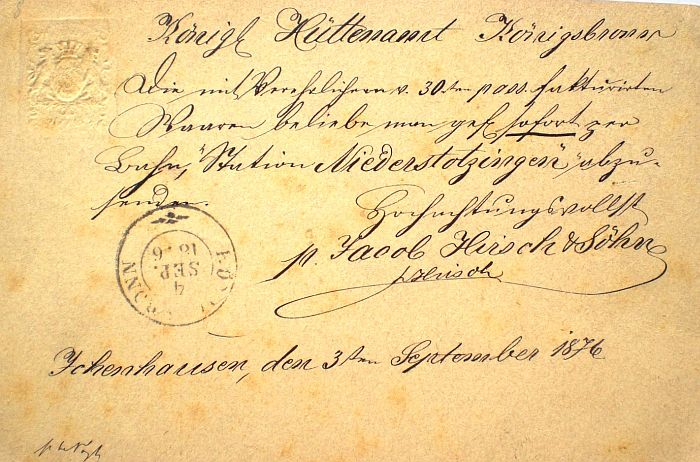 Königl Hüttenamt Königsbronn
Die mit Verehrlichem v. 30sten pass. fakturirten
Waaren beliebe man gef. sofort per
Bahn, "Station Niederstotzingen" abzu-
senden.
Hochachtungsvollst
p. Jacob Hirsch & Söhne
J. Hirsch
4
SEP.
18 76
Ichenhausen, den 3ten September 1876